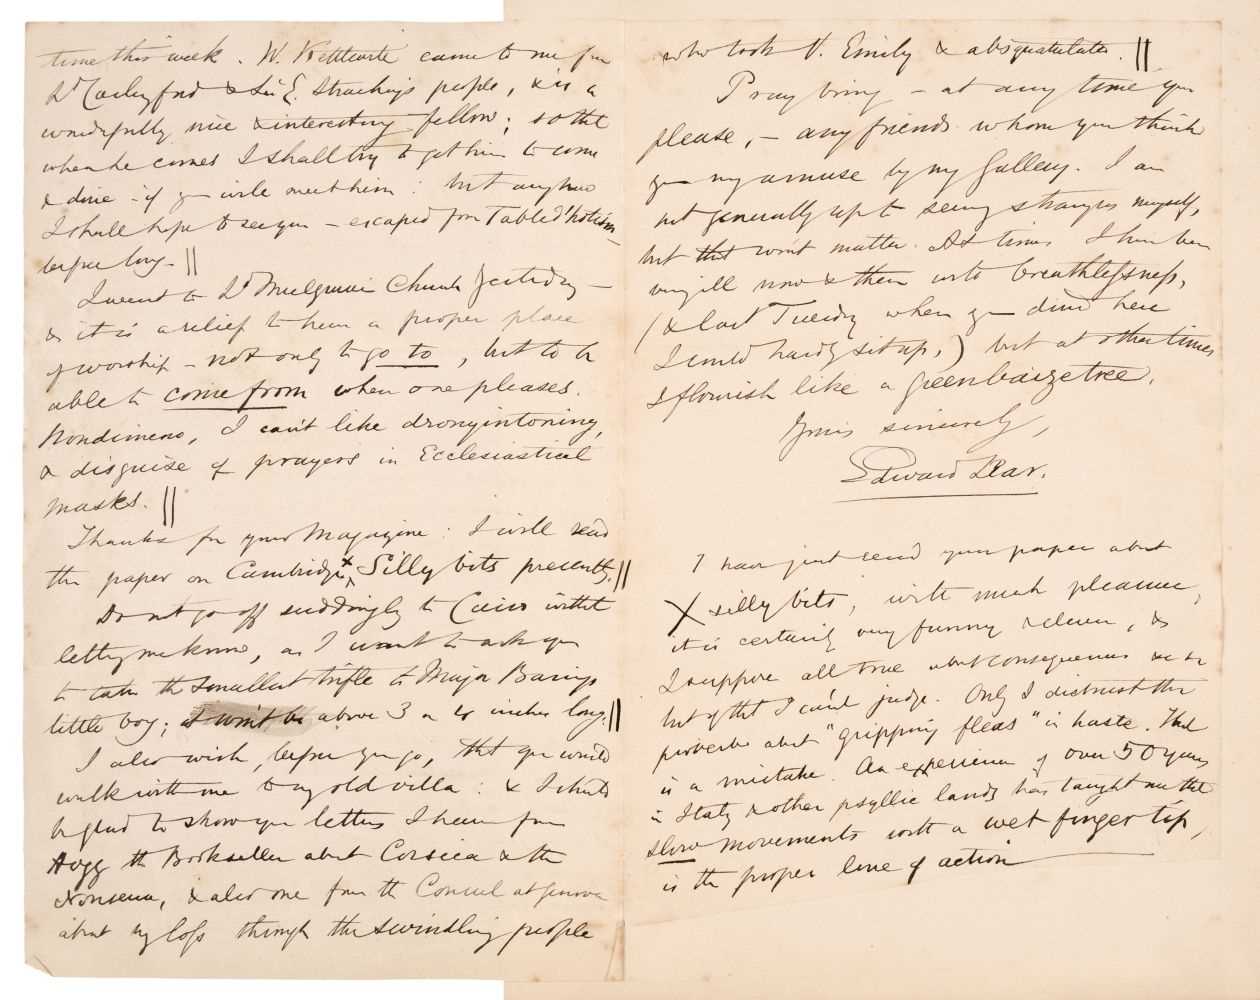 time this week. W. Nettlewite came to me from
Ld Carlingford & Sir E. Strachey's people, & is a
wonderfully nice & interesting fellow; so that
when he comes I shall try to get him to come
& dine - if you will meet him: but anyhow
I shall hope to see you - escaped from Tabled'hotism -
before long - ||
I went to Ld Mulgrave's Church yesterday -
& it is a relief to have a proper place
of worship - not only to go to, but to be
able to come from when one pleases.
Nondimeno, I can't like dronyintoning,
& disguise of prayers in Ecclesiastical
masks. ||
Thanks for your Magazine: I will read
the paper on Cambridge X Silly bits presently. ||
Do not go off suddingly to Cairo without
letting me know, as I want to ask you
to take the smallest trifle to Major Barings
little boy; it won't be above 3 or 4 inches long. ||
I also wish, before you go, that you would
walk with me to my old villa: & I should
be glad to show you letters I have from
Hogg the Bookseller about Corsica & the
Nonsense, & also one from the Consul at Genova
about my loss through the swindling people
who took V. Emily & absquatulated. ||
Pray bring - at any time you
please, - any friends whom you think
you may amuse by my Gallery. I am
not generally up to seeing strangers myself,
but that won't matter. At times I have been
very ill now & then with breathlessness,
(& last Tuesday when you dined here
I could hardly sit up,) but at other times
I flourish like a greenbaizetree.
Yours sincerely,
Edward Lear.
I have just read your paper about
X silly bits, with much pleasure,
it is certainly very funny & clever, &
I suppose all true about consequences &c &c
but of that I can't judge. Only I distrust the
proverb about "gripping fleas" in haste. That
is a mistake. An experience of over 50 years
in Italy & other psyllic lands has taught me that
slow movements with a wet finger tip,
is the proper line of action